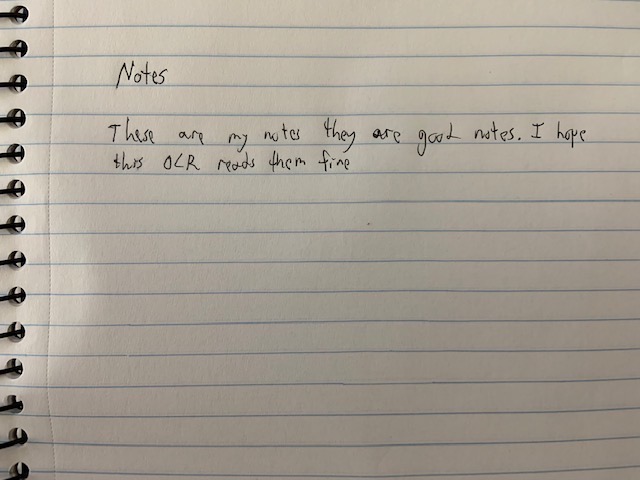 Notes
These are my notes they are good notes. I hope
this OCR reads them fine